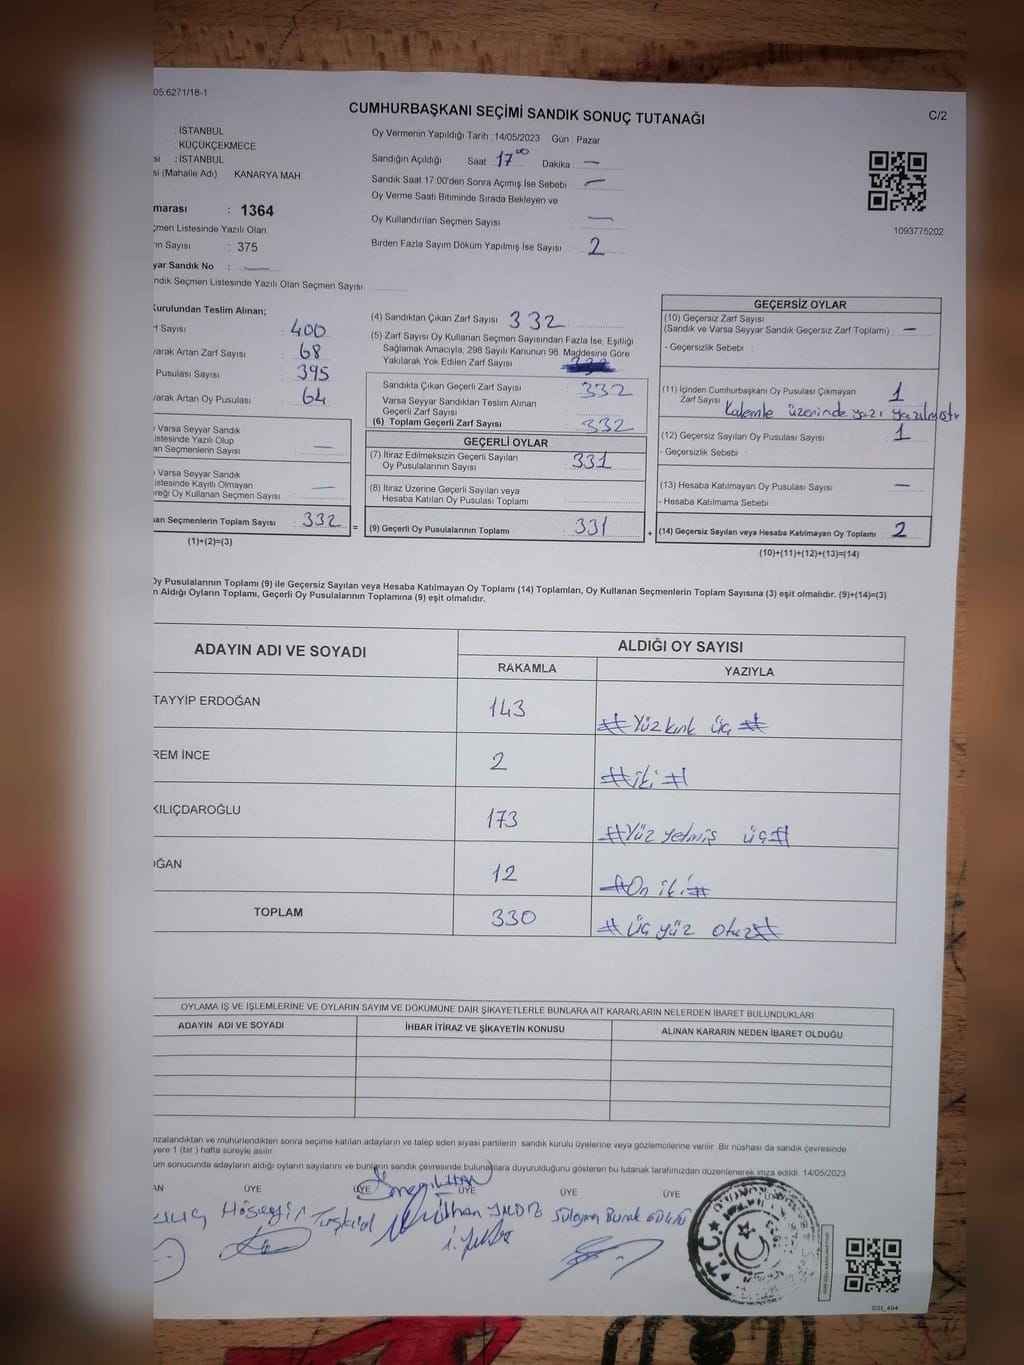 05.6271/18-1
CUMHURBAŞKANI SEÇİMİ SANDIK SONUÇ TUTANAĞI
C/2
: İSTANBUL
: KÜÇÜKÇEKMECE
si : İSTANBUL
si (Mahalle Adı) KANARYA MAH.
marası : 1364
çmen Listesinde Yazılı Olan
in Sayısı : 375
yar Sandık No :
ndık Seçmen Listesinde Yazılı Olan Seçmen Sayısı:
Oy Vermenin Yapıldığı Tarih : 14/05/2023 Gün : Pazar
Sandığın Açıldığı Saat : 17 00 Dakika : —
Sandık Saat 17:00'den Sonra Açımış İse Sebebi : —
Oy Verme Saati Bitiminde Sırada Bekleyen ve
Oy Kullandırılan Seçmen Sayısı : —
Birden Fazla Sayım Döküm Yapılmış İse Sayısı : 2
1093775202
Kurulundan Teslim Alınan;
f Sayısı : 400
yarak Artan Zarf Sayısı : 68
Pusulası Sayısı : 395
yarak Artan Oy Pusulası : 64
Varsa Seyyar Sandık
istesinde Yazılı Olup
an Seçmenlerin Sayısı : —
Varsa Seyyar Sandık
istesinde Kayıtlı Olmayan
reği Oy Kullanan Seçmen Sayısı : —
an Seçmenlerin Toplam Sayısı : 332
(1)+(2)=(3)
(4) Sandıktan Çıkan Zarf Sayısı : 332
(5) Zarf Sayısı Oy Kullanan Seçmen Sayısından Fazla İse, Eşitliği
Sağlamak Amacıyla, 298 Sayılı Kanunun 98. Maddesine Göre
Yakılarak Yok Edilen Zarf Sayısı :
Sandıkta Çıkan Geçerli Zarf Sayısı : 332
Varsa Seyyar Sandıktan Teslim Alınan
Geçerli Zarf Sayısı :
(6) Toplam Geçerli Zarf Sayısı : 332
GEÇERLİ OYLAR
(7) İtiraz Edilmeksizin Geçerli Sayılan
Oy Pusulalarının Sayısı : 331
(8) İtiraz Üzerine Geçerli Sayılan veya
Hesaba Katılan Oy Pusulası Toplamı :
= (9) Geçerli Oy Pusulalarının Toplamı : 331
GEÇERSİZ OYLAR
(10) Geçersiz Zarf Sayısı
(Sandık ve Varsa Seyyar Sandık Geçersiz Zarf Toplamı) : —
- Geçersizlik Sebebi :
(11) İçinden Cumhurbaşkanı Oy Pusulası Çıkmayan
Zarf Sayısı : 1
Kalemle üzerinde yazı yazılmıştır
(12) Geçersiz Sayılan Oy Pusulası Sayısı : 1
- Geçersizlik Sebebi :
(13) Hesaba Katılmayan Oy Pusulası Sayısı : —
- Hesaba Katılmama Sebebi :
+ (14) Geçersiz Sayılan veya Hesaba Katılmayan Oy Toplamı : 2
(10)+(11)+(12)+(13)=(14)
Oy Pusulalarının Toplamı (9) ile Geçersiz Sayılan veya Hesaba Katılmayan Oy Toplamı (14) Toplamları, Oy Kullanan Seçmenlerin Toplam Sayısına (3) eşit olmalıdır. (9)+(14)=(3)
n Aldığı Oyların Toplamı, Geçerli Oy Pusulalarının Toplamına (9) eşit olmalıdır.
ADAYIN ADI VE SOYADI ALDIĞI OY SAYISI
RAKAMLA YAZIYLA
TAYYİP ERDOĞAN 143 #Yüz kırk üç#
REM İNCE 2 #iki#
KILIÇDAROĞLU 173 #Yüz yetmiş üç#
OĞAN 12 #On iki#
TOPLAM 330 #üç yüz otuz#
OYLAMA İŞ VE İŞLEMLERİNE VE OYLARIN SAYIM VE DÖKÜMÜNE DAİR ŞİKAYETLERLE BUNLARA AİT KARARLARIN NELERDEN İBARET BULUNDUKLARI
ADAYIN ADI VE SOYADI İHBAR İTİRAZ VE ŞİKAYETİN KONUSU ALINAN KARARIN NEDEN İBARET OLDUĞU
nzalandıktan ve mühürlendikten sonra seçime katılan adayların ve talep eden siyasi partilerin sandık kurulu üyelerine veya gözlemcilerine verilir. Bir nüshası da sandık çevresinde
yere 1 (bir) hafta süreyle asılır.
üm sonucunda adayların aldığı oyların sayılarını ve bunların sandık çevresinde bulunanlara duyurulduğunu gösteren bu tutanak tarafımızdan düzenlenerek imza edildi. 14/05/2023
AN ÜYE ÜYE ÜYE ÜYE ÜYE
Hüseyin
İlhan YILDIZ
Süleyman Burak
T.C.
SSI_404